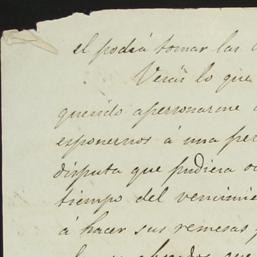 el podrá tomar las
Verás lo que
querido apersonarme
esponernos á una per
disputa que pudiera o
tiempo del vencimie
á hacer sus remesas